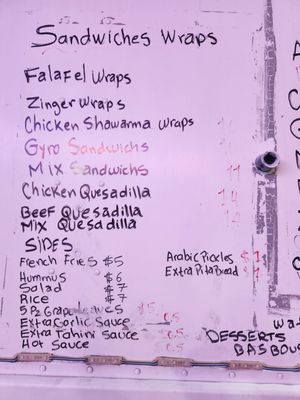 Sandwiches Wraps
Falafel Wraps
Zinger Wraps
Chicken Shawarma Wraps
Gyro Sandwichs
Mix Sandwichs 11
Chicken Quesadilla 14
Beef Quesadilla
Mix Quesadilla
SIDES
French Fries $5
Hummus $6
Salad $7
Rice $7
5 Pz Grape Leaves $5
Extra Garlic Sauce 0.5
Extra Tahini Sauce 0.5
Hot Sauce 0.5
Arabic Pickles $1
Extra Pita Bread $1
DESSERTS